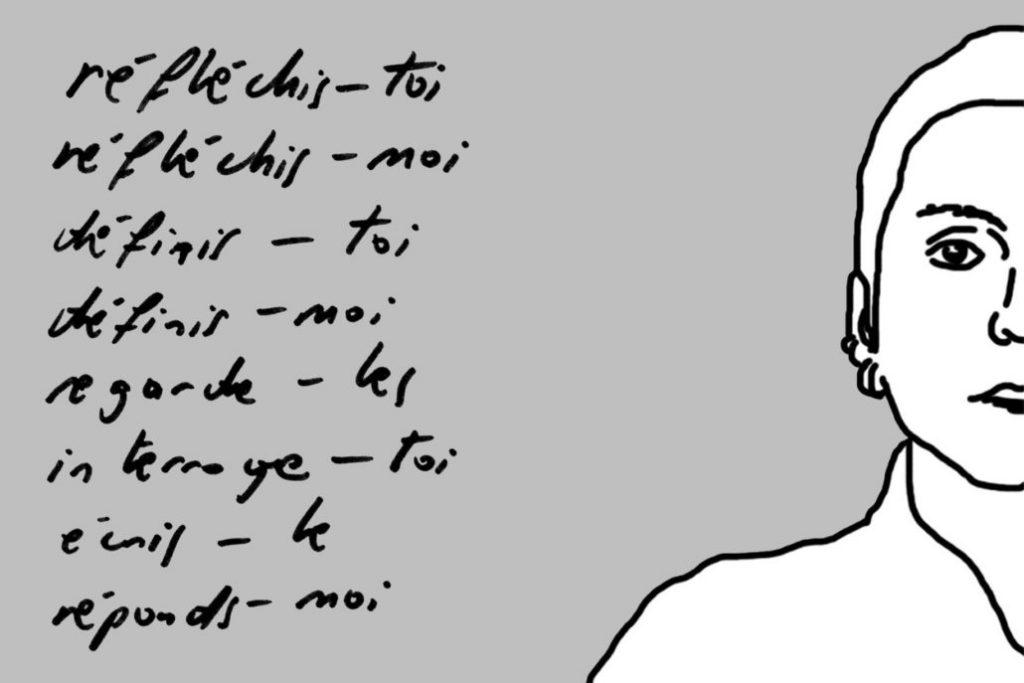 réfléchis-toi
réfléchis-moi
définis-toi
définis-moi
regarde-les
interroge-toi
écris-le
réponds-moi